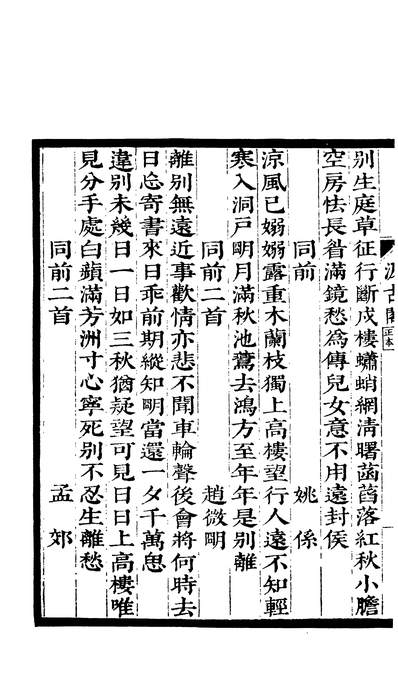 汲古閣 正本
別生庭草征行斷戍樓蠨蛸網清曙菡萏落紅秋小膽
空房怯長眉滿鏡愁為傳兒女意不用遠封侯
同前 姚係
涼風已嫋嫋露重木蘭枝獨上高樓望行人遠不知輕
寒入洞戶明月滿秋池鷰去鴻方至年年是別離
同前二首 趙微明
離別無遠近事歡情亦悲不聞車輪聲後會將何時去
日忩寄書來日乖前期縱知明當還一夕千萬思
違別未幾日一日如三秋猶疑望可見日日上高樓唯
見分手處白蘋滿芳洲寸心寧死別不忍生離愁
同前二首 孟郊